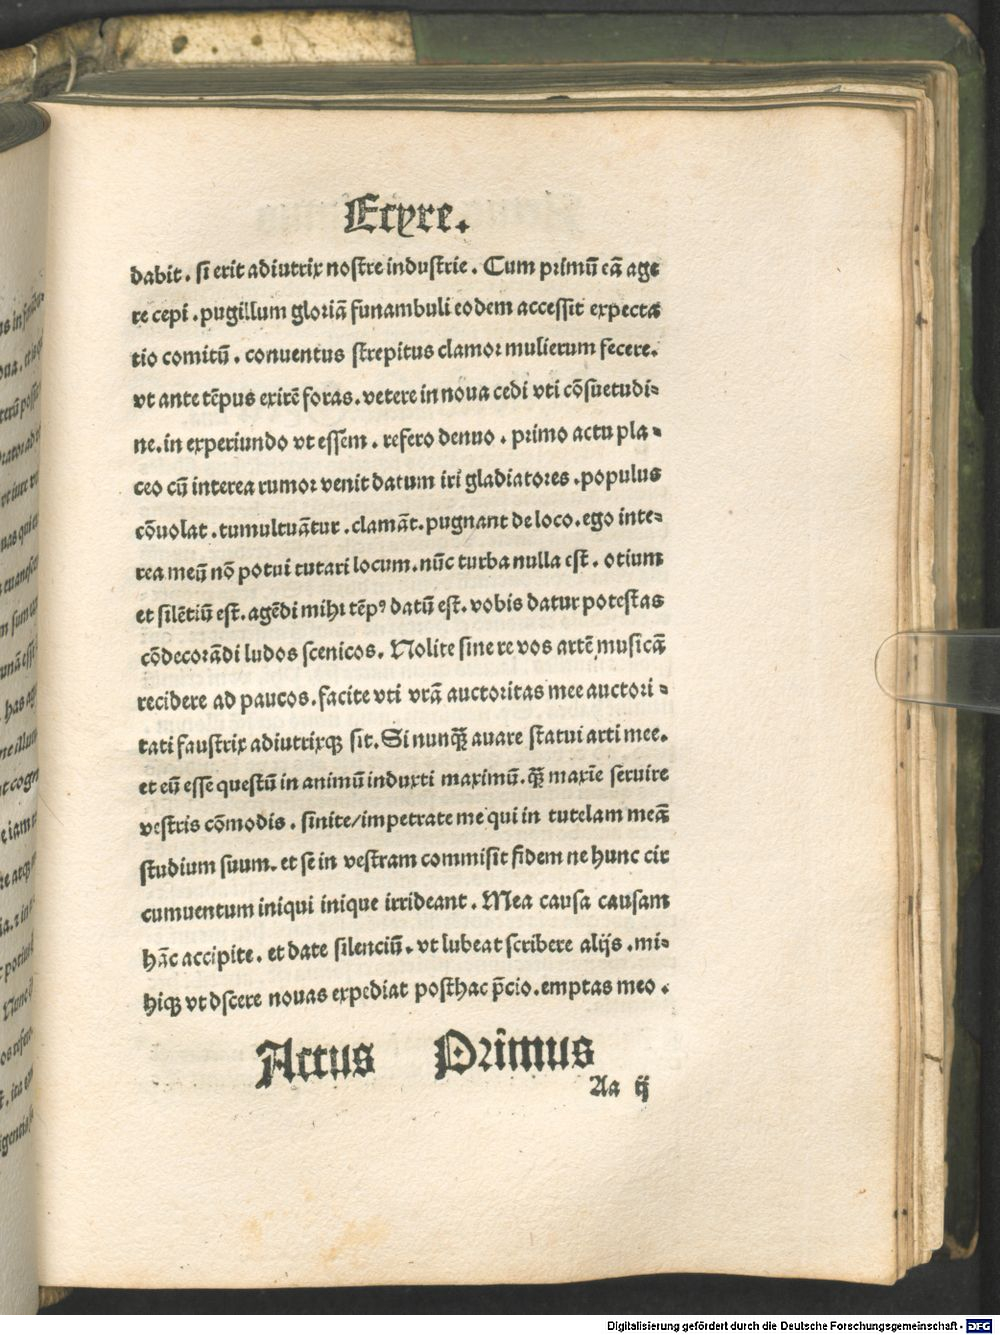 Ecyre.
dabit. si erit adiutrix nostre industrie. Cum primũ eã age
re cepi. pugillum gloriã funambuli eodem accessit expecta
tio comitũ. conuentus strepitus clamor mulierum fecere.
vt ante tẽpus exirẽ foras. vetere in noua cedi vti cõsuetudi-
ne. in experiundo vt essem. refero denuo. primo actu pla-
ceo cũ interea rumor venit datum iri gladiatores. populus
cõuolat. tumultuãtur. clamãt. pugnant de loco. ego inte-
rea meũ nõ potui tutari locum. nũc turba nulla est. otium
et silẽtiũ est. agẽdi mihi tẽpꝰ datũ est. vobis datur potestas
cõdecorãdi ludos scenicos. Nolite sine re vos artẽ musicã
recidere ad paucos. facite vti vrã auctoritas mee auctori-
tati faustrix adiutrixqꝫ sit. Si nunqꝫ̃ auare statui arti mee.
et eũ esse questũ in animũ induxti maximũ. qꝫ̃ maxĩe seruire
vestris cõmodis. sinite/impetrate me qui in tutelam meã
studium suum. et se in vestram commisit fidem ne hunc cir
cumuentum iniqui inique irrideant. Mea causa causam
hãc accipite. et date silenciũ. vt lubeat scribere alijs. mi-
hiqꝫ vt dscere nouas expediat posthac p̃cio. emptas meo.
Actus Primus
Aa ij
Digitalisierung gefördert durch die Deutsche Forschungsgemeinschaft - DFG